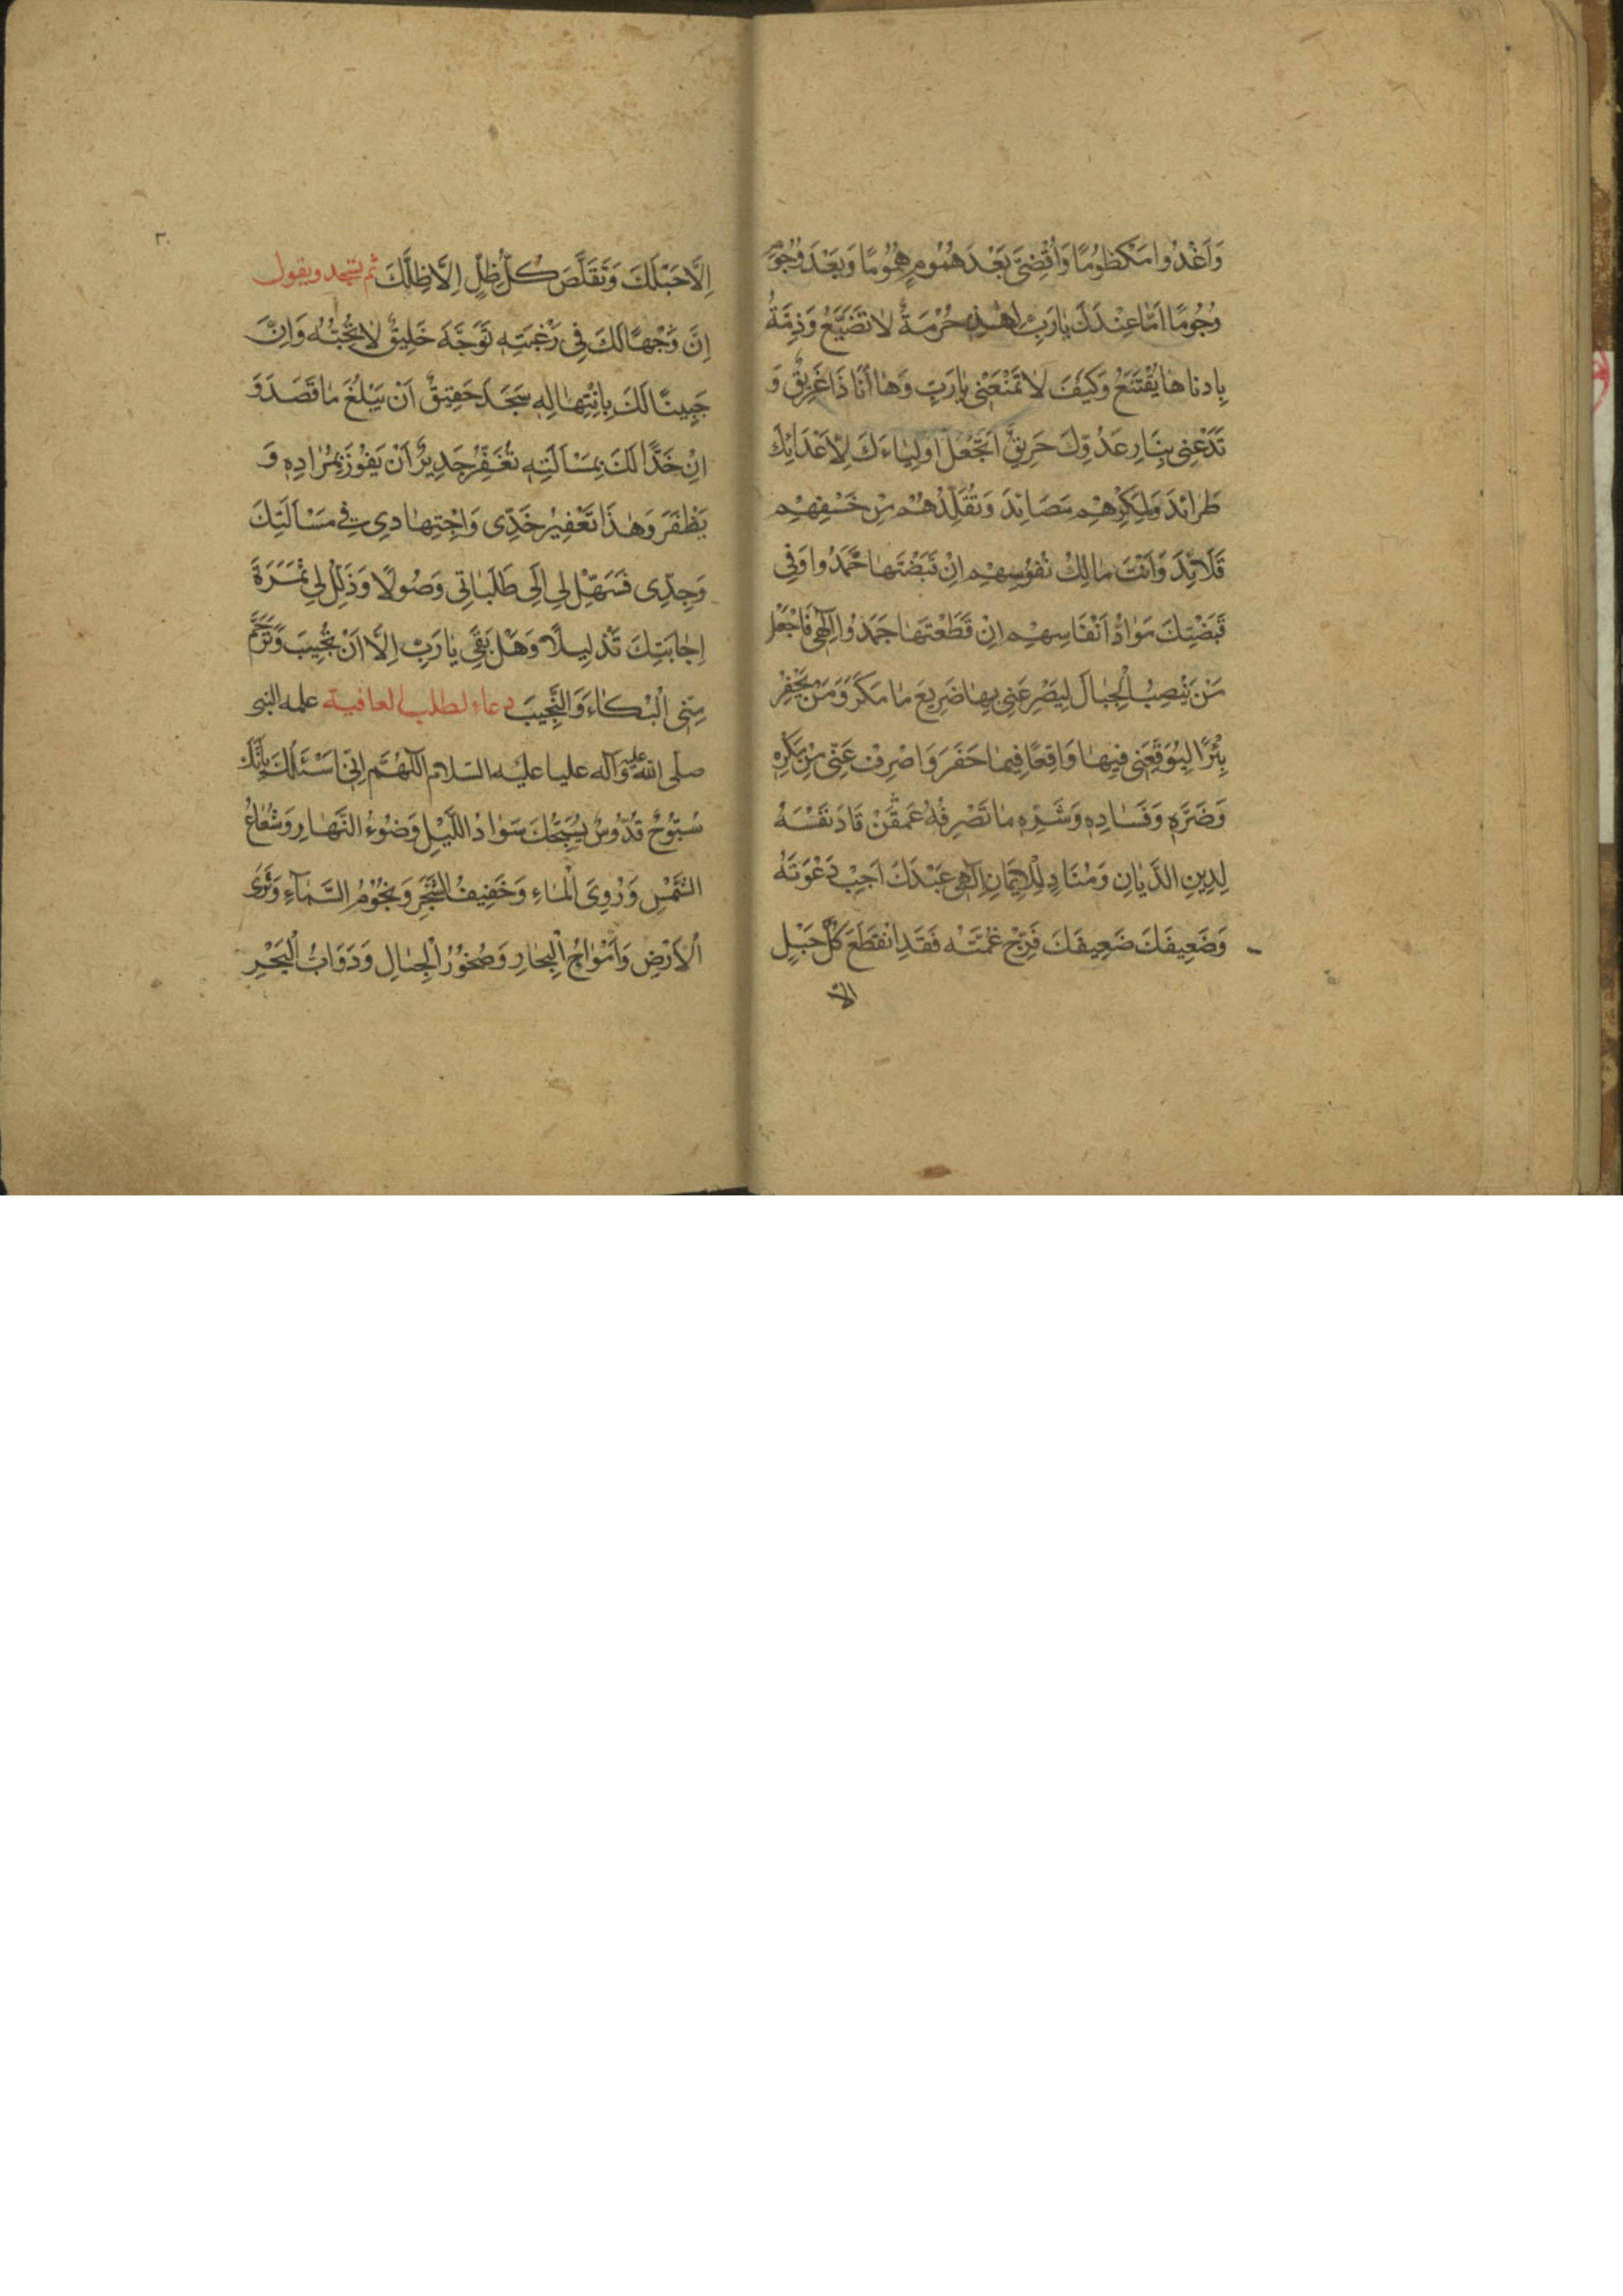 وَاَغْدُوا مَكْظُومًا وَاَقْضِيَ بَعْدَ هُمُومٍ هُمُومًا وَبَعْدَ وُجُومٍ
وُجُومًا اَمَا عِنْدَكَ يَارَبِّ هٰذِهِ حُرْمَةٌ لَا تُضَيَّعُ وَذِمَّةٌ
بِادناهَا يُقْتَنَعُ وَكَيْفَ لَا تَمْنَعُنِي يَارَبِّ وَهَا اَنَا ذَا غَرِيقٌ وَ
تَدَعُنِي بِنَارِ عَدُوِّكَ حَرِيقٌ اَتَجْعَلُ اَوْلِيَاءَكَ لِاَعْدَائِكَ
طَرَائِدَ وَلِمَكْرِهِمْ مَصَائِدَ وَتُقَلِّدُهُمْ مِنْ خَسْفِهِمْ
قَلَائِدَ وَاَنْتَ مَالِكُ نُفُوسِهِمْ اِنْ قَبَضْتَهَا خَمَدُوا وَفِي
قَبْضَتِكَ مَوَادُّ اَنْفَاسِهِمْ اِنْ قَطَعْتَهَا جَمَدُوا اِلٰهِي فَاجْعَلْ
مَنْ يَنْصِبُ الْجِبَالَ لِيَصْرَعَنِي بِهَا ضَرِيعَ مَا مَكَرَ وَمَنْ يَحْفِرُ
بِئْرًا لِيُوقِعَنِي فِيهَا وَاقِعًا فِيمَا حَفَرَ وَاصْرِفْ عَنِّي مِنْ مَكْرِهِ
وَضَرِّهِ وَفَسَادِهِ وَشَرِّهِ مَا تَصْرِفُهُ عَمَّنْ قَادَ نَفْسَهُ
لِدِينِ الدَّيَّانِ وَمُنَادٍ لِلْاِيمَانِ اِلٰهِي عَبْدَكَ اَجِبْ دَعْوَتَهُ
وَضَعِيفَكَ ضَعِيفَكَ فَرِّجْ غُمَّتَهُ فَقَدِ انْقَطَعَ كُلُّ حَبْلٍ
الا
٣٠
اِلَّا حَبْلَكَ وَتَقَلَّصَ كُلُّ ظِلٍّ اِلَّا ظِلَّكَ ثم يسجد ويقول
اِنَّ وَجْهًا لَكَ فِي رَغْبَتِهِ تَوَجَّهَ خَلِيقٌ لَا تُجْبِهُهُ وَاِنَّ
جَبِينًا لَكَ بِابْتِهَالِهِ سَجَدَ حَقِيقٌ اَنْ يَبْلُغَ مَا قَصَدَ وَ
اِنَّ خَدًّا لَكَ بِمَسْأَلَتِهِ تُعَفِّرُ جَدِيرٌ اَنْ يَفُوزَ بِمُرَادِهِ وَ
يَظْفَرَ وَهٰذَا تَعْفِيرُ خَدِّي وَاجْتِهَادِي فِي مَسْاَلَتِكَ
وَجِدِّي فَسَهِّلْ لِي اِلَى طَلَبَاتِي وَصُولًا وَذَلِّلْ لِي ثَمَرَةَ
اِجَابَتِكَ تَذْلِيلًا وَهَلْ بَقِيَ يَارَبِّ اِلَّا اَنْ تُجِيبَ وَتَرْحَمَ
مِنِّي الْبُكَاءَ وَالنَّحِيبَ دعاء لطلب العافية علمه النبي
صلى الله عليه وآله عليا عليه السلام اللّٰهُمَّ اِنِّي اَسْئَلُكَ بِاَنَّكَ
سُبُّوحٌ قُدُّوسٌ يُسَبِّحُكَ سَوَادُ اللَّيْلِ وَضَوْءُ النَّهَارِ وَشُعَاعُ
الشَّمْسِ وَدَوِيُّ الْمَاءِ وَحَفِيفُ الشَّجَرِ وَنُجُومُ السَّمَاءِ وَثَرَى
الْاَرْضِ وَاَمْوَاجُ الْبِحَارِ وَصُخُورُ الْجِبَالِ وَدَوَابُّ الْبَحْرِ